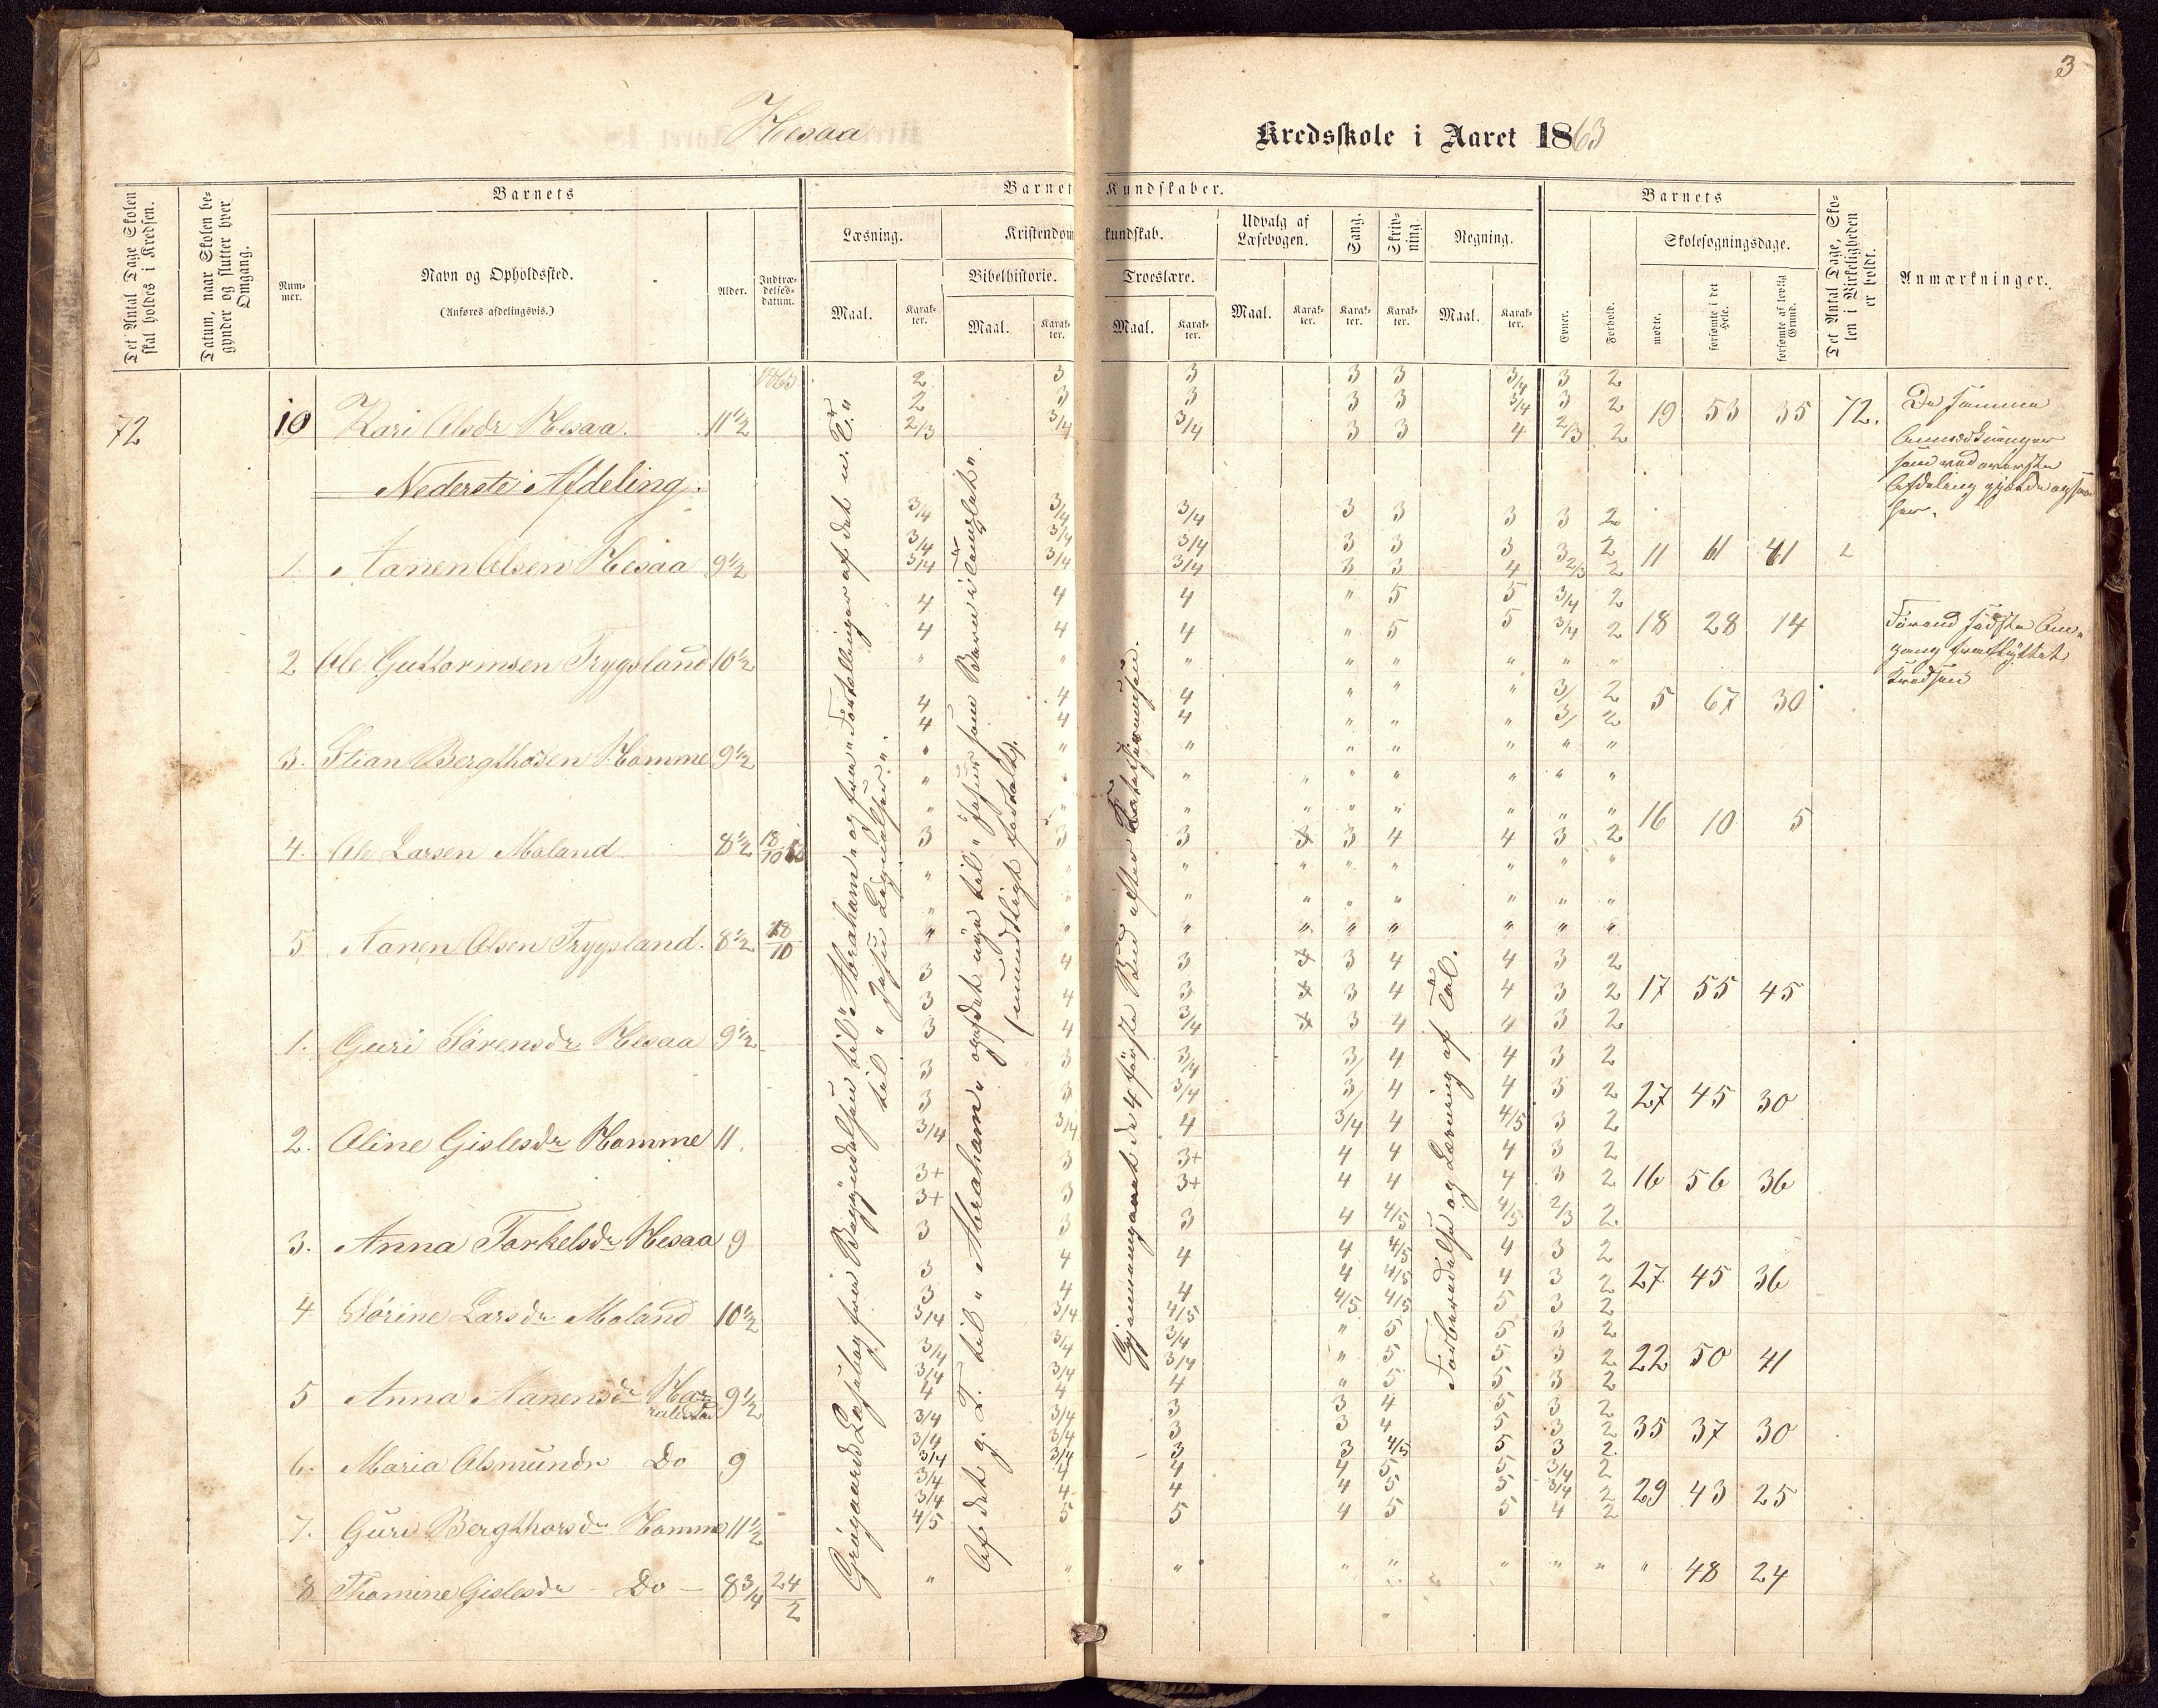 3
Hesaa
Kredsskole i Aaret 1863
Det Antal Dage Skolen skal holdes i Kredsen.
Datum, naar Skolen begynder og slutter hver Omgang.
Barnets
Nummer.
Navn og Opholdssted.
(Anføres afdelingsvis.)
Alder.
Indtrædelsesdatum.
Barnets Kundskaber.
Læsning.
Maal.
Karakter.
Kristendomskundskab.
Bibelhistorie.
Maal.
Karakter.
Troeslære.
Maal.
Karakter.
Udvalg af Læsebogen.
Maal.
Karakter.
Sang.
Karakter.
Skrivning.
Karakter.
Regning.
Maal.
Karakter.
Barnets
Evner.
Forhold.
Skolesøgningsdage.
mødte.
forsømte i det Hele.
forsømte af lovlig Grund.
Det Antal Dage, Skolen i Virkeligheden er holdt.
Anmærkninger.
1863
72 10 Kari Olsdr Hesaa. 11½ 2 3 3 3 3 3/4 3 2
2 3 3 3 3 3/4 3 2 19 53 35 72.
2/3 3/4 3/4 3 3 4 2/3 2
De samme
Anmærkninger
som ved øverste
Afdeling gjælde ogsaa
her.
Nederste Afdeling.
1. Aanen Olsen Hesaa 9½ 3/4 3/4 3/4 3 3 3 3 2
3/4 3/4 3/4 3 3 3 3 2 11 61 41
3/4 3/4 3/4 3 3 4 2/3 2
2 Ole Guttormsen Trygsland 10½ 4 4 4 " 5 5 3/4 2
4 4 4 " 5 5 3/4 2 18 28 14
" " " " " " " "
Førend sidste Om-
gang fraflyttet
Kredsen
3. Stian Bergthorsen Homme 9½ 4 4 4 " " " 3/ 2 5 67 30
4 4 4 " " " 3/ 2
" " " " " " "
4. Ole Larsen Moland 8½ 18/10 " " " " " " " "
" " " " " " " " 16 10 5
3 3 3 3 4 4 3 2
5 Aanen Olsen Trygsland. 8½ 18/10 " " " " " " " " "
" " " " " " " " "
" " " " " " " " "
1. Guri Sørensdr Hesaa 9½ 3 4 3 3 4 4 3 2
3 4 3 3 4 4 3 2 17 55 45
3 4 3/4 3 4 4 3 2
2. Oline Gislesdr Homme 11. 3 3 3/4 3/ 4 4 3 2
3 3 3/4 3/ 4 4 3 2 27 45 30
3/4 3/4 4 3/4 4 4/5 3 2
3. Anna Torkelsdr Hesaa 9 3+ 3 3+ 4 4 4 3 2
3+ 3 3+ 4 4 4 3 2 16 56 36
3 3 3 4 4/5 4/5 2/3 2
4 Sørine Larsdr Moland 10½ 3 4 4 4 4/5 4 3 2
3 4 4 4 4/5 4 3 2 27 45 36
3/4 3/4 4/5 4/5 4/5 5 3 2
5 Anna Aanensdr Haraldstad 9½ 3/4 3/4 3/4 " 5 5 3 2
3/4 3/4 3/4 " 5 5 3 2 22 50 41
4 4 4 " 5 5 3 2
6. Maria Asmundr Do 9 3/4 3/4 3 3 4 5 3 2
3/4 3/4 3 3 4 5 3 2 35 37 30
3/4 3/4 3 3 4/5 5 3 2
7. Guri Bergthorsdr Homme 11½ 3/4 4 4 4 5 5 3/4 2
3/4 4 4 4 5 5 3/4 2 29 43 25
4/5 5 5 4 5 5 4 2
8 Thomine Gislesdr - Do - 8¾ 24/2 " " " " " " " " " 48 24
Grøgaards Læsebog fra Begyndelsen til "Abraham" og fra "Fortællinger af det n. T."
til "Jesu Lignelser".
Af det g. T. til "Abraham" og det nye til "Jesus som Barn i Templet"
(mundtligt fortalt).
Gjennemgaaet de 4 første Bud efter Katekismusen.
Forberedelse og Lærning af Tal.